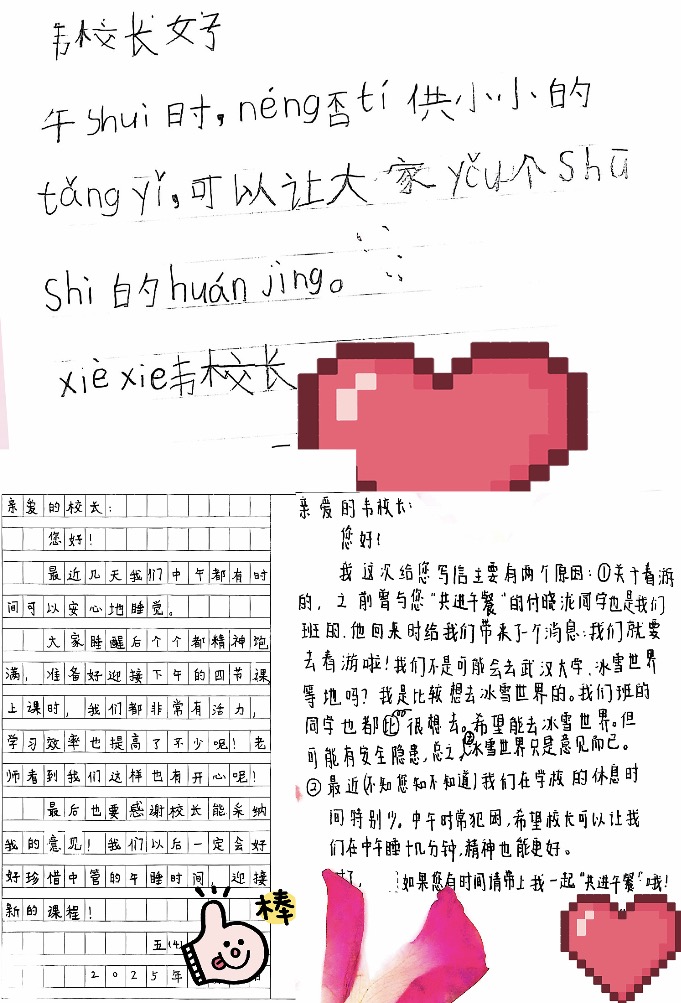 韦校长好
午shui时，néng否tí供小小的
tǎng yǐ，可以让大家yǒu个shū
shi的huán jìng。
xiè xie韦校长
亲爱的校长：
您好！
最近几天我们中午都有时
间可以安心地睡觉。
大家睡醒后个个都精神饱
满，准备好迎接下午的四节课
上课时，我们都非常有活力，
学习效率也提高了不少呢！老
师看到我们这样也有开心呢！
最后也要感谢校长能采纳
我的意见！我们以后一定会好
好珍惜中管的午睡时间，迎接
新的课程！
五(4)
2025年
棒
亲爱的韦校长：
您好！
我这次给您写信主要有两个原因：①关于春游
的，之前曾与您“共进午餐”的付晓泷同学也是我们
班的，他回来时给我们带来了个消息：我们就要
去春游啦！我们不是可能会去武汉大学、冰雪世界
等地吗？我是比较想去冰雪世界的。我们班的
同学也都很想去。希望能去冰雪世界。但
可能有安全隐患，总之，冰雪世界只是意见而已。
②最近(不知您知不知道)我们在学校的休息时
间特别少。中午时常犯困，希望校长可以让我
们在中午睡十几分钟，精神也能更好。
如果您有时间请带上我一起“共进午餐”哦！